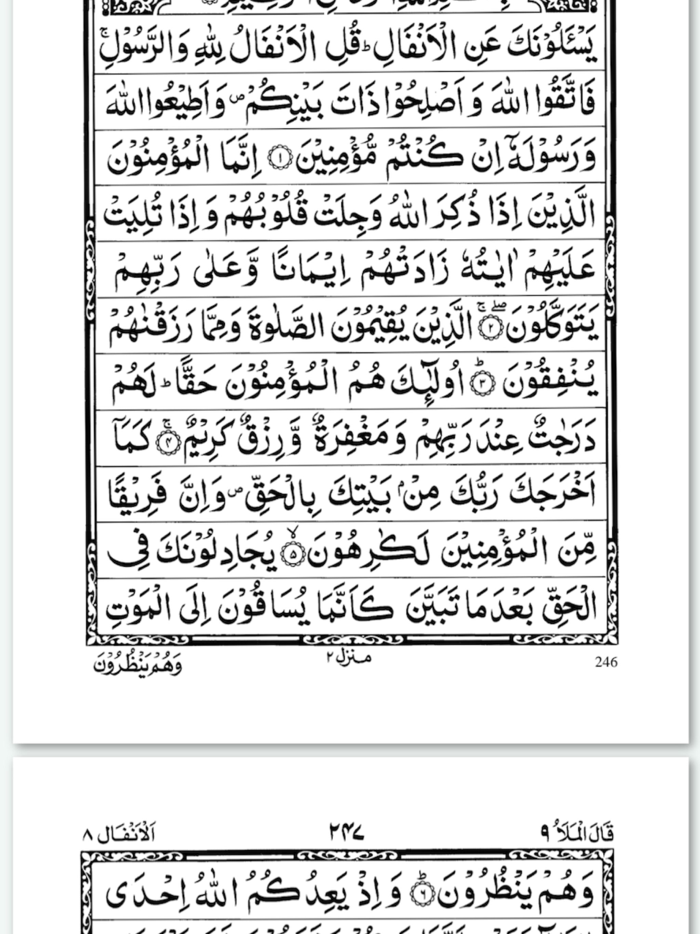 يَسْـَٔلُوْنَكَ عَنِ الْاَنْفَالِ ؕ قُلِ الْاَنْفَالُ لِلّٰهِ وَالرَّسُوْلِ ۚ
فَاتَّقُوا اللّٰهَ وَ اَصْلِحُوْا ذَاتَ بَيْنِكُمْ ۪ وَاَطِيْعُوا اللّٰهَ
وَ رَسُوْلَهٗۤ اِنْ كُنْتُمْ مُّؤْمِنِيْنَ ۝۱ اِنَّمَا الْمُؤْمِنُوْنَ
الَّذِيْنَ اِذَا ذُكِرَ اللّٰهُ وَجِلَتْ قُلُوْبُهُمْ وَ اِذَا تُلِيَتْ
عَلَيْهِمْ اٰيٰتُهٗ زَادَتْهُمْ اِيْمَانًا وَّعَلٰى رَبِّهِمْ
يَتَوَكَّلُوْنَ ۝۲ۖۚ الَّذِيْنَ يُقِيْمُوْنَ الصَّلٰوةَ وَمِمَّا رَزَقْنٰهُمْ
يُنْفِقُوْنَ ۝۳ؕ اُولٰٓئِكَ هُمُ الْمُؤْمِنُوْنَ حَقًّا ؕ لَهُمْ
دَرَجٰتٌ عِنْدَ رَبِّهِمْ وَ مَغْفِرَةٌ وَّ رِزْقٌ كَرِيْمٌ ۝۴ۚ كَمَاۤ
اَخْرَجَكَ رَبُّكَ مِنْۢ بَيْتِكَ بِالْحَقِّ ۪ وَ اِنَّ فَرِيْقًا
مِّنَ الْمُؤْمِنِيْنَ لَكٰرِهُوْنَ ۝۵ۙ يُجَادِلُوْنَكَ فِى
الْحَقِّ بَعْدَ مَا تَبَيَّنَ كَاَنَّمَا يُسَاقُوْنَ اِلَى الْمَوْتِ
246 منزل ۲ وَهُمْ يَنْظُرُوْنَ
قَالَ الْمَلَاُ ۹ ۲۴۷ اَلْاَنْفَال ۸
وَهُمْ يَنْظُرُوْنَ ۝۶ؕ وَ اِذْ يَعِدُكُمُ اللّٰهُ اِحْدَى